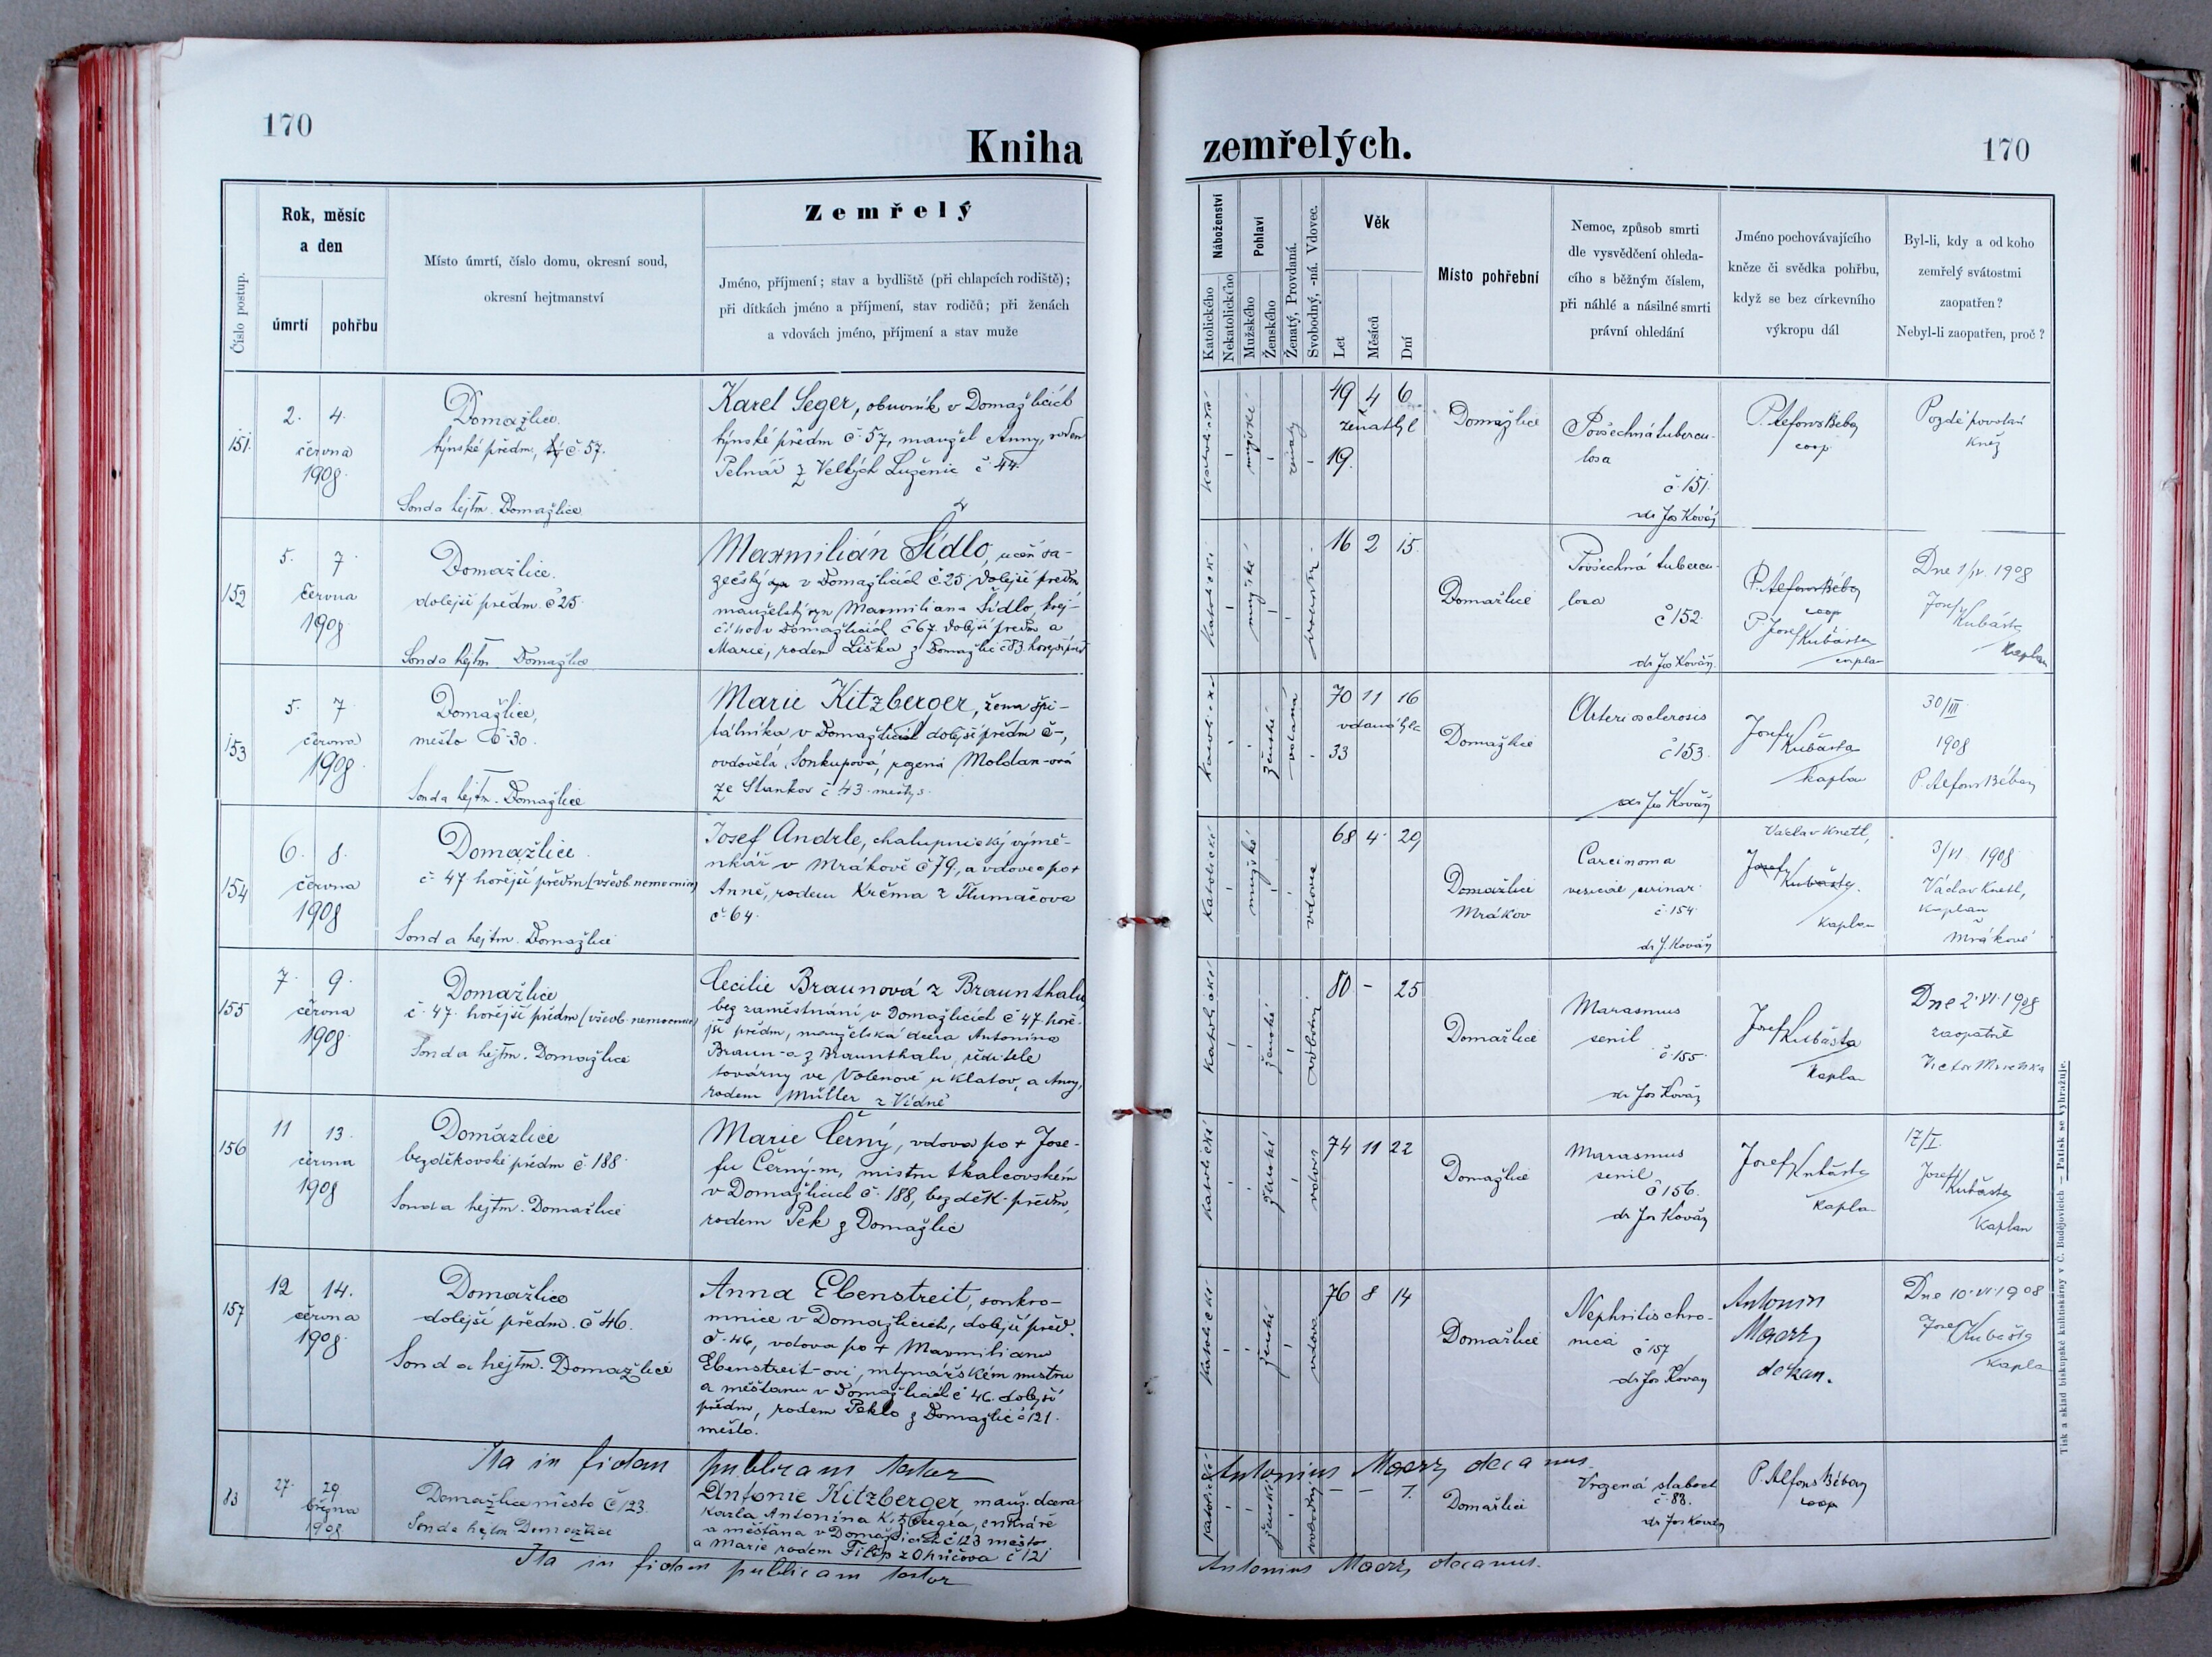 170
Kniha
zemřelých.
170
Číslo postup.
Rok, měsíc
a den
úmrtí
pohřbu
Místo úmrtí, číslo domu, okresní soud,
okresní hejtmanství
Zemřelý
Jméno, příjmení; stav a bydliště (při chlapcích rodiště);
při dítkách jméno a příjmení, stav rodičů; při ženách
a vdovách jméno, příjmení a stav muže
Náboženství
Katolického
Nekatolického
Pohlaví
Mužského
Ženského
Ženatý, Provdaná.
Svobodný, -ná. Vdovec.
Věk
Let
Měsíců
Dní
Místo pohřební
Nemoc, způsob smrti
dle vysvědčení ohleda-
cího s běžným číslem,
při náhlé a násilné smrti
právní ohledání
Jméno pochovávajícího
kněze či svědka pohřbu,
když se bez církevního
výkropu dál
Byl-li, kdy a od koho
zemřelý svátostmi
zaopatřen?
Nebyl-li zaopatřen, proč?
151.
2. 4.
června
1908.
Domažlice.
týnské předm, č. 57.
Soud a hejtm. Domažlice
Karel Seger, obuvník v Domažlicích
týnské předm č. 57, manžel Anny, roden
Pelnář z Velkých Luženic č. 44.
19 4 6
19.
Domažlice
Povšechná tubercu-
losa
č. 151.
dr Jos Kovář
P. Alfons Béby
coop.
Pozdě povolán
kněz
152
5. 7.
června
1908.
Domažlice.
dolejší předm. č 25.
Soud a hejtm Domažlice
Maxmilián Šídlo, učeň sa-
zečský v Domažlicích č. 25 dolejší předm,
manželský syn Maxmiliana Šídlo, krej-
čího v Domažlicích č 67. dolejší předm a
Marie, rodem Liška z Domažlic č 83. horejší před
katolické
mužské
16 2 15.
Domažlice
Povšechná tubercu-
losa
č 152.
dr Jos Kovář.
P. Alfons Béby
coop
P. Josef Kubásta
Dne 1/VI. 1908
Josef Kubásta
kaplan
153
5. 7
června
1908.
Domažlice,
město č. 30.
Soud a hejtm. Domažlice
Marie Kitzberger, žena špi-
tálníka v Domažlicích dolejší předm č -,
ovdovělá Soukupová, rozená Moldan-ová
ze Stankov č 43. městys.
ženské
vdaná
70 11 16
33
Domažlice
Arteriosclerosis
č 153.
dr Jos Kovář
Josef Kubásta
kaplan
30/III
1908
P. Alfons Béby
154
6. 8.
června
1908
Domažlice.
č. 47 hořejší předm (všeob. nemocnice)
Soud a hejtm. Domažlice
Josef Andrle, chalupnický výmě-
nkář v Mrákově č 79, a vdovec po +
Anně, rodem Krčma z Tlumačova
č. 64.
katolické
mužské
vdovec
68 4 29
Domažlice
Mrákov
Carcinoma
vesicae urinar.
č. 154.
dr J. Kovář
Václav Knetl,
Josef Kubásta.
kaplan
3/VI. 1908
Václav Knetl,
kaplan
Mrákově
155
7. 9.
června
1908.
Domažlice
č. 47. hořejší předm (všeob. nemocnice)
Soud a hejtm. Domažlice
Cecilie Braunová z Braunthalu
bez zaměstnání v Domažlicích č 47 hoře-
jší předm, manželská dcera Antonína
Braun-a z Braunthalu, ředitele
továrny ve Volenově u Klatov, a Anny,
rodem Müller z Vídně
katolické
ženské
80 - 25
Domažlice
Marasmus
senil
č. 155.
dr Jos Kovář
Josef Kubásta
kaplan
Dne 2. VI. 1908
zaopatřil
156
11 13.
června
1908
Domažlice
bezděkovské předm č. 188.
Soud a hejtm. Domažlice
Marie Černý, vdova po + Jose-
fu Černý-m, mistru tkalcovském
v Domažlicích č. 188, bezděk. předm,
rodem Pek z Domažlic
katolické
ženské
vdova
74 11 22
Domažlice
Marasmus
senil
č 156.
dr Jos Kovář
Josef Kubásta
kaplan
17/I.
Josef Kubásta
kaplan
157
12 14.
června
1908.
Domažlice
dolejší předm. č 46.
Soud a hejtm. Domažlice
Anna Ebenstreit, soukro-
mnice v Domažlicích, dolejší před.
č. 46, vdova po + Maxmilianu
Ebenstreit-ovi, mlynářském mistru
a měšťanu v Domažlicích č 46. dolejší
předm, rodem Peklo z Domažlic č 121.
město.
katolické
ženské
vdova
76 8 14
Domažlice
Nephritis chro-
nica č 157
dr Jos Kovář
Antonín
Maerz,
děkan.
Dne 10. VI. 1908
Josef Kubásta
kaplan
Ita in fidem publicam testor
Antonius Maerz decanus.
83
27. 29
března
1908.
Domažlice město č 123.
Soud a hejtm Domažlice
Antonie Kitzberger, manž. dcera
Karla Antonína Kitzbergra, cukráře
a měšťana v Domažlicích č 123 město
a Marie rodem Filip z Ohučova č 121
katolické
ženské
- - 7.
Domažlice
Vrozená slabost
č. 83.
dr Jos Kovář
P. Alfons Béby
coop
Ita in fidem publicam testor
Antonius Maerz, decanus.
Tisk a sklad biskupské knihtiskárny v Č. Budějovicích — Patisk se vyhražuje.